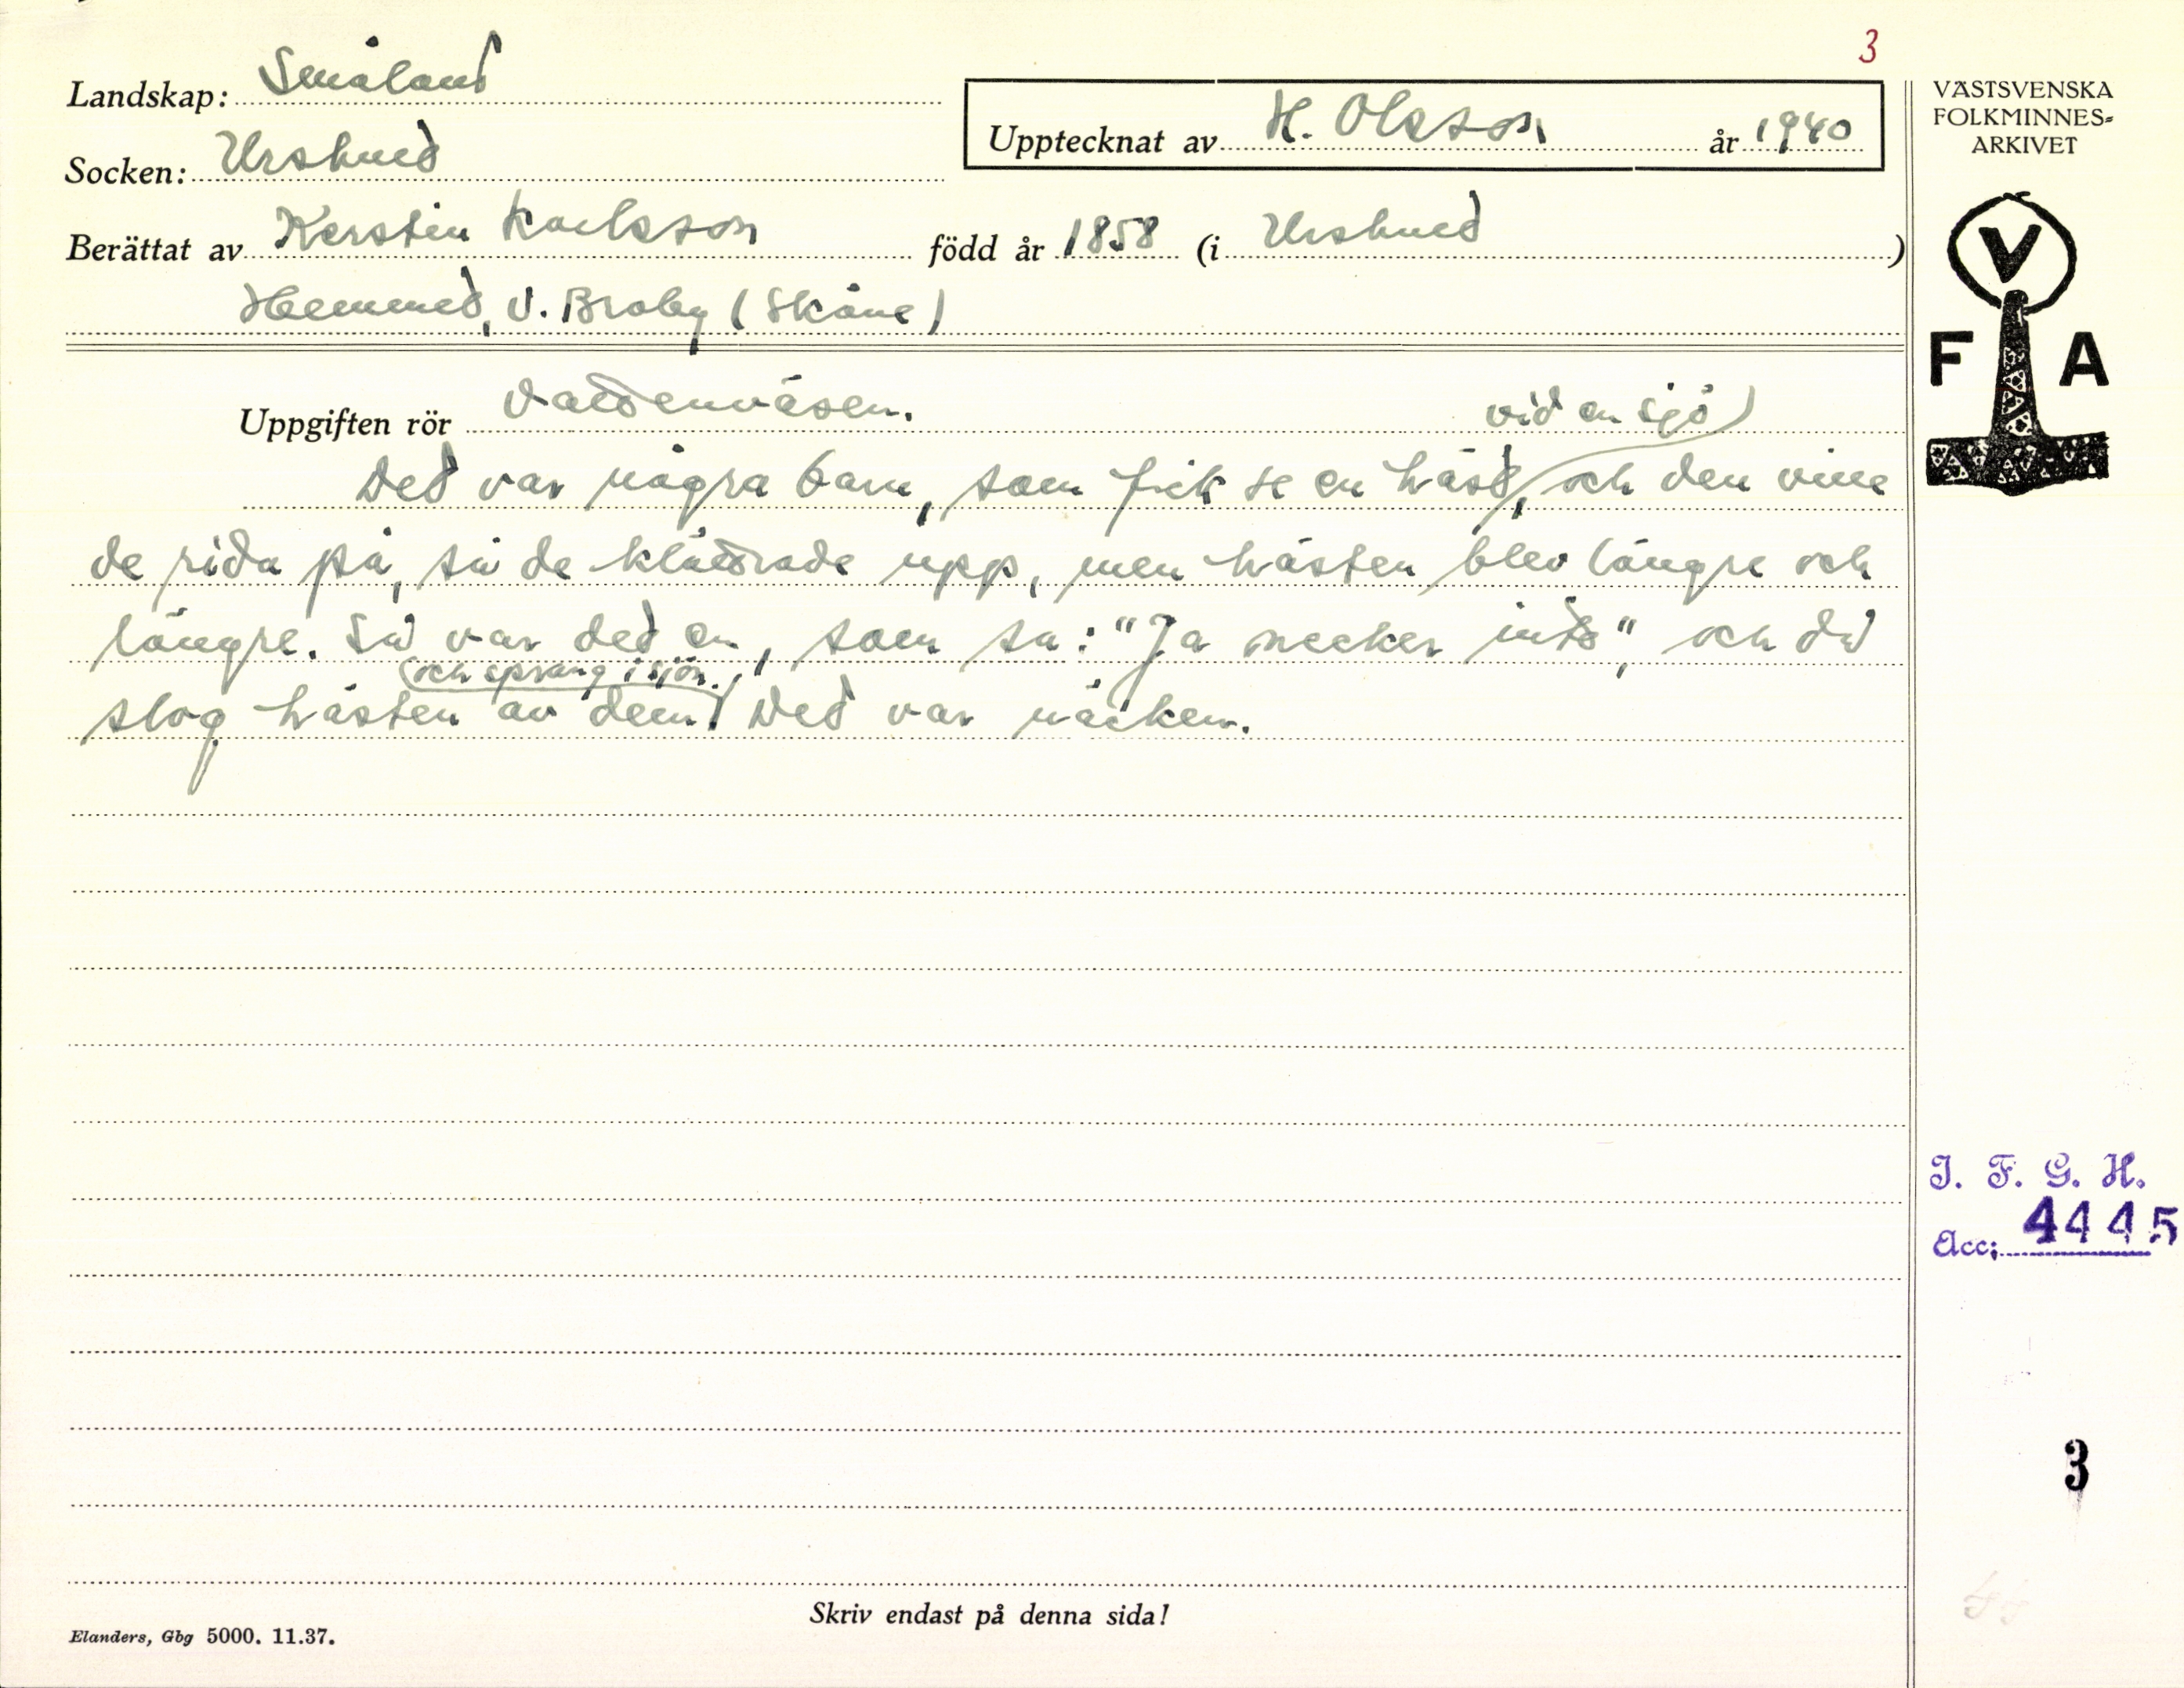 3
Landskap: Småland
Upptecknat av H. Olsson år 1940
Socken: Urshult
Berättat av Kerstin Karlsson född år 1858 (i Urshult)
V. Broby (Skåne)
Uppgiften rör Vattenväsen.
vid en sjö
Det var några barn, som fick se en häst, och den ville
de rida på, så de klättrade upp, men hästen blev längre och
längre. Så var det en, som sa: "Ja necker inte", och då
och sprang i sjön.
slog hästen av dem. Det var näcken.
Skriv endast på denna sida!
Elanders, Gbg 5000. 11.37.
VÄSTSVENSKA
FOLKMINNES-
ARKIVET
V
F A
I. F. G. H.
Acc: 4445
3